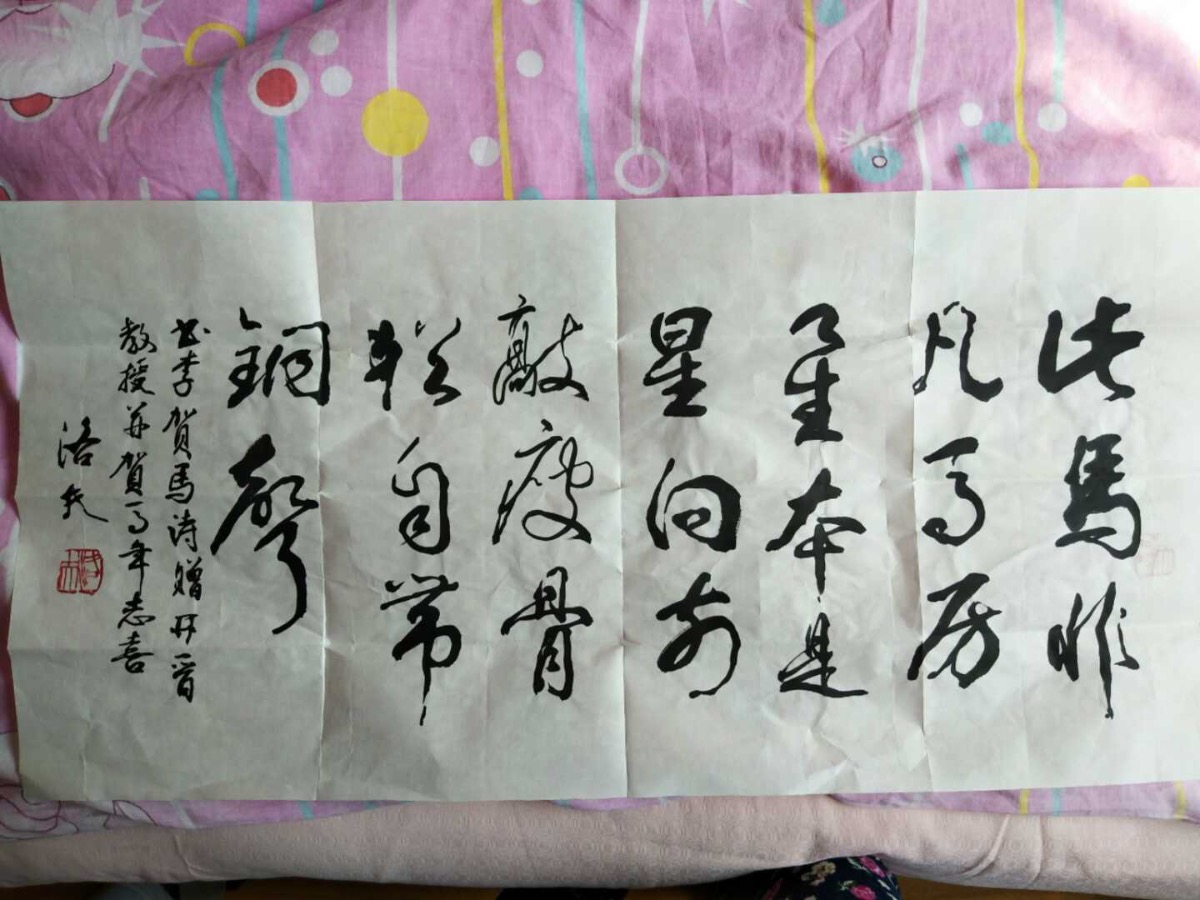 此馬非
凡馬房
星本是
星向前
敲瘦骨
猶自帶
銅聲
书李賀馬诗贈开晋
教授并賀马年志喜
洛夫